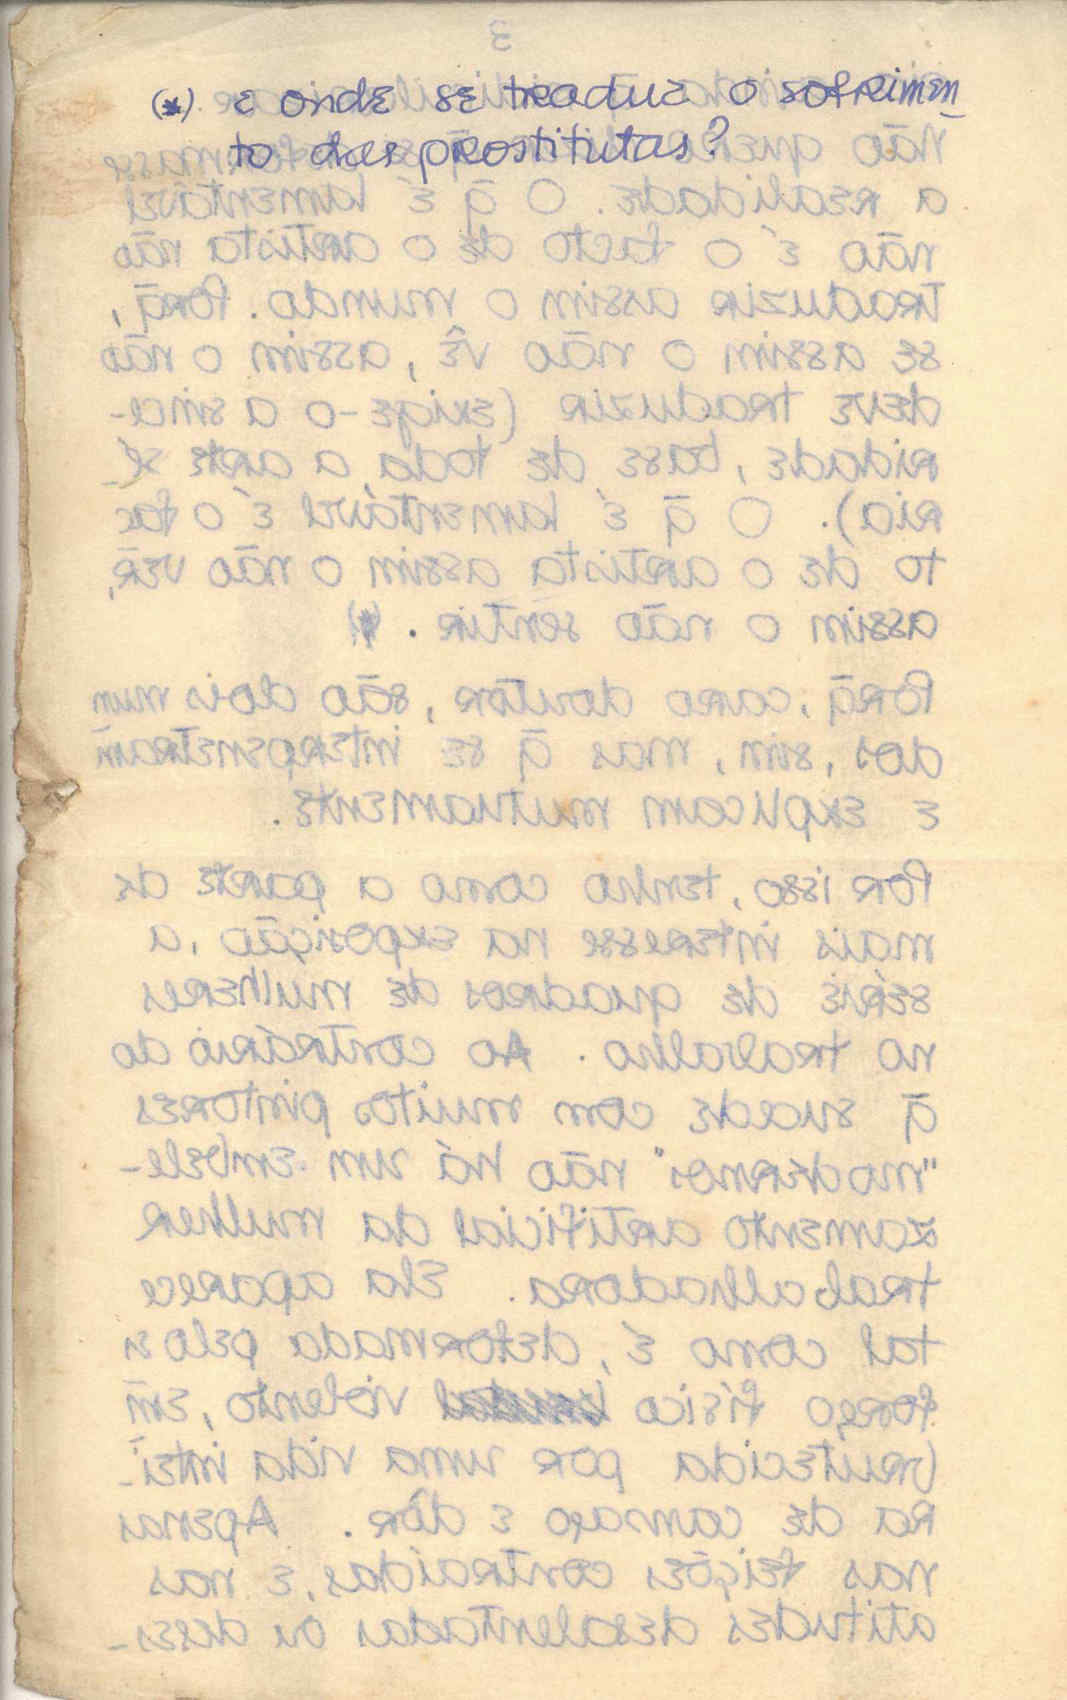 (*) e onde se traduz o sofrimen_
to das prostitutas?
3
não
a realidade. O q̄ é lamentável
não é o facto de o artista não
traduzir assim o mundo. Porq̄,
se assim o não vê, assim o não
deve traduzir (exige-o a since-
ridade, base de toda a arte sé_
ria). O q̄ é lamentável é o fac
to de o artista assim o não vêr,
assim o não sentir. (*)
Porq̄, caro doutor, são dois mun
dos, sim, mas q̄ se interpenetram
e explicam mutuamente.
Por isso, tenho como a parte de
mais interesse na exposição, a
série de quadros de mulheres
no trabalho. Ao contrário do
q̄ sucede com muitos pintores
"modernos" não há um embele-
zamento artificial da mulher
trabalhadora. Ela aparece
tal como é, deformada pelo es
forço físico violento, em
brutecida por uma vida intei_
ra de cansaço e dôr. Apenas
nas feições contraídas, e nas
atitudes desalentadas ou deses-